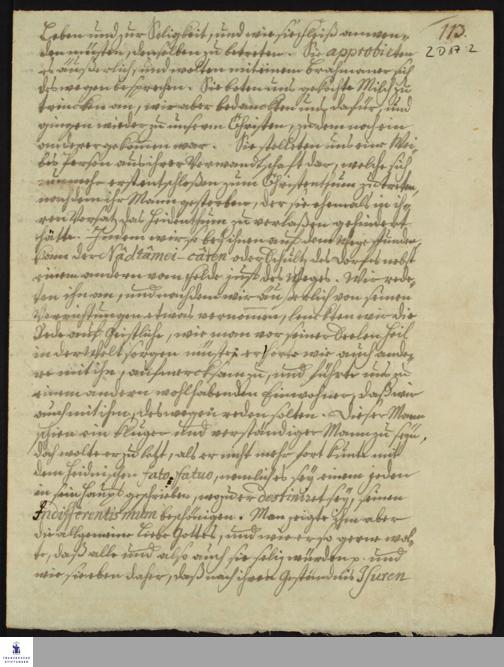 113.
2 D 17:2
Leben und zur Seligkeit, und wie sie fleißig anwen-
den müsten, denselben zu betreten. Sie approbirten
es äußerlich, und wolten mit einem Brahmaner sich
deswegen besprechen. Sie boten uns gekochte Milch zu
trincken an, wir aber bedanckten uns dafür, und
gingen wieder zu unsern Christen, zu denen noch ein
anderer gekommen war. Sie stelleten uns eine Wei-
bes Person aus ihrer Verwandtschaft dar, welche sich
nunmehr erst entschloßen zum Christenthum zu treten,
nachdem ihr Mann gestorben, der sie ehemals in ih-
ren Vorsatz, das Heidenthum zu verlaßen gehindert
hätte. Indem wir so bey ihnen auf dem Wege stunden,
kam der Nádtámei-cáren oder Schultz des Dorfes nebst
einem andern vom Felde just des Weges. Wir rede-
ten ihn an, und nachdem wir äuserlich von seinen
Verrichtungen etwas vernommen, lenckten wir die
Rede aufs Geistliche, wie man vor seiner Seelen Heil
in der Welt sorgen müste; er hörte wie auch ande-
re mit ihm, aufmercksam zu, und führte uns zu
einem andern wohlhabenden Einwohner, daß wir
auch mit ihm, deswegen reden solten. Dieser Mann
schien ein kluger und verständiger Mann zu seyn,
doch wolte er zuletzt, als er nicht mehr fort kunte mit
dem Heidnischen fato fatuo, nemlich es sey einem jeden
in sein Haupt geschrieben, wozu er destiniret sey, seinen
Indifferentismum beschönigen. Man zeigte ihm aber
die allgemeine Liebe Gottes, und wie er so gerne wol-
te, daß alle und also auch sie selig würden p. und
wie sie eben daher, daß nach ihrem Geständnis Isuren
FRANCKESCHE
STIFTUNGEN